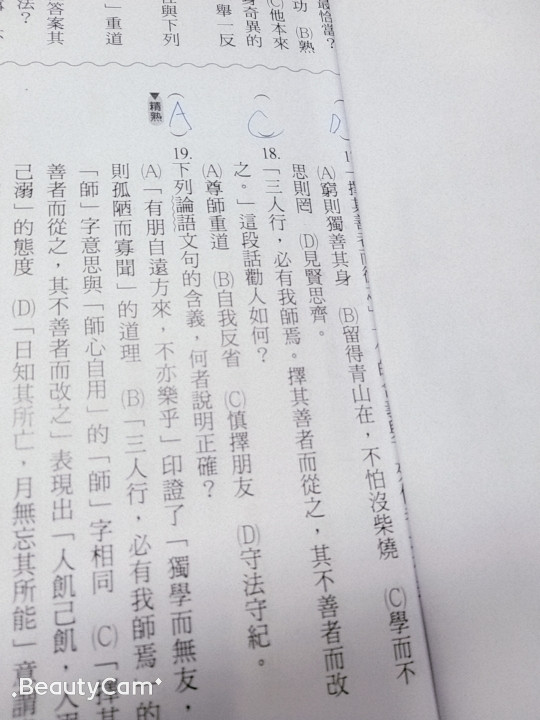 最恰當？
功 (B)熟
(C)他本來
身奇異的
舉一反
」重道
與下列
法？
答案其
( D )
(A)窮則獨善其身 (B)留得青山在，不怕沒柴燒 (C)學而不
思則罔 (D)見賢思齊。
( C ) 18.「三人行，必有我師焉。擇其善者而從之，其不善者而改
之。」這段話勸人如何？
(A)尊師重道 (B)自我反省 (C)慎擇朋友 (D)守法守紀。
( A ) 19.下列論語文句的含義，何者說明正確？
▼精熟
(A)「有朋自遠方來，不亦樂乎」印證了「獨學而無友，
則孤陋而寡聞」的道理 (B)「三人行，必有我師焉」的
「師」字意思與「師心自用」的「師」字相同 (C)「擇其
善者而從之，其不善者而改之」表現出「人飢己飢，人溺
己溺」的態度 (D)「日知其所亡，月無忘其所能」意謂
BeautyCam